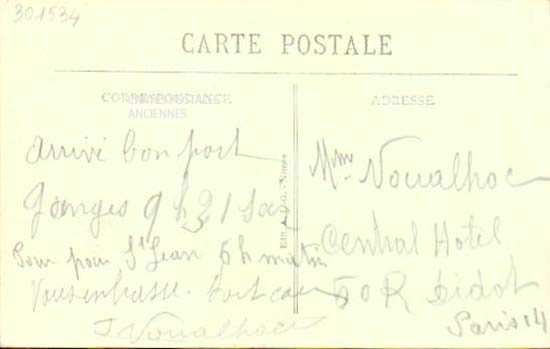 301534
CARTE POSTALE
CORRESPONDANCE
CARTES POSTALES
ANCIENNES
ADRESSE
arrivé bon port
Ganges 9 h 31
pour St Jean 5 h matin
Vous embrasse.
J Noualhac
Mme Noualhac
Central Hotel
50 R Didot
Paris 14